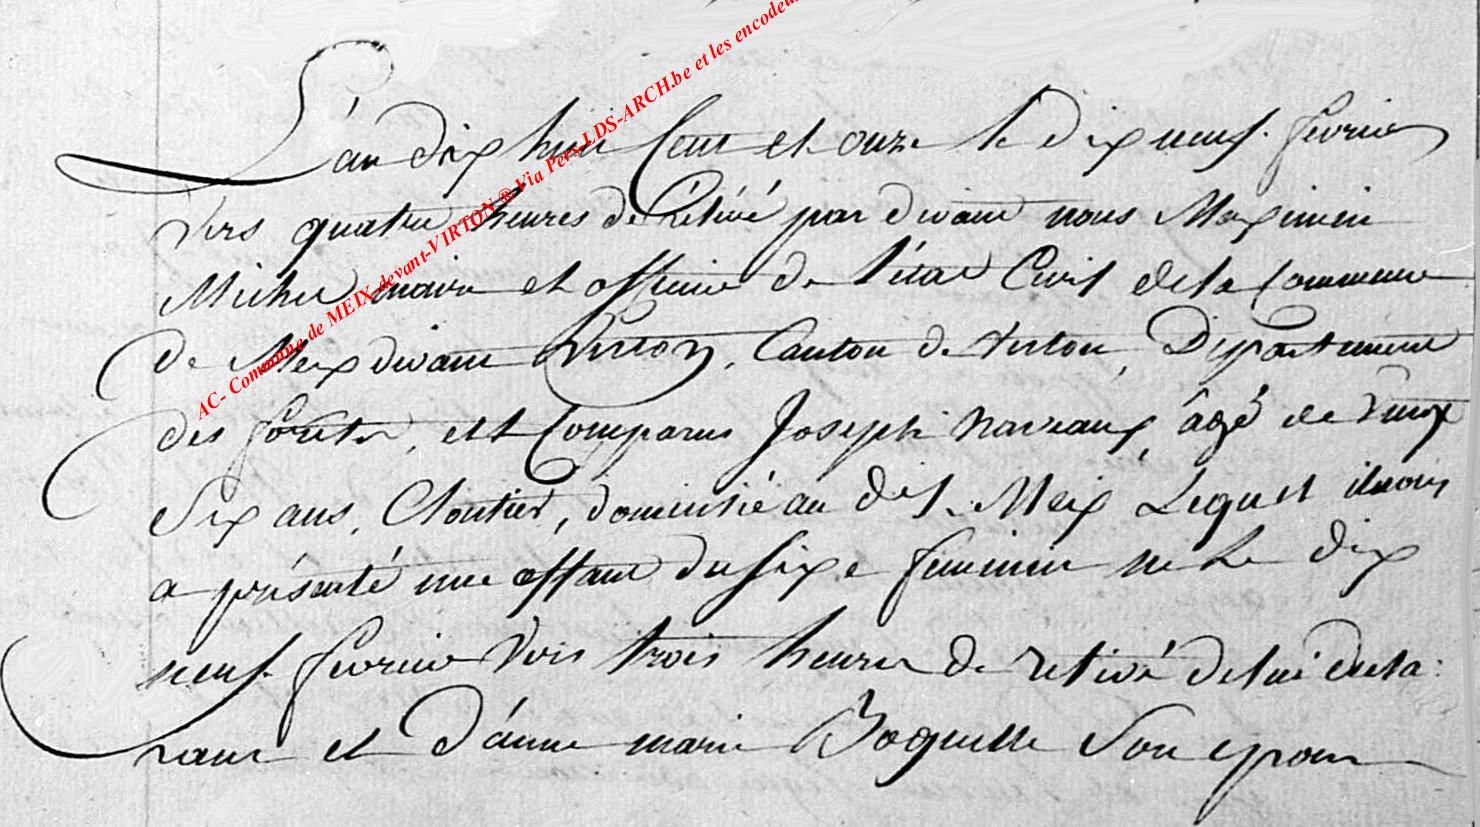 AC- Commune de MEIX-devant-VIRTON ® Via Pers-LDS-ARCH.be et les encodeu
L'an dix huit Cent et onze le dix neuf fevrier
vers quatre heures de rélévé par divant nous Maximin
Michel maire et officier de l'état Civil de la Commune
de Meix divant Virton, Canton de Virton, Département
des forêts, est Comparus Joseph Naveaux, âgé de vingt
six ans, Cloutier, domicilié au dit Meix Lequel nous
a présenté une effant du sixe feminin né Le dix
neuf fevrier vers trois heures de relivé de lui decla:
rant et d'anne marie Boquelle son epous